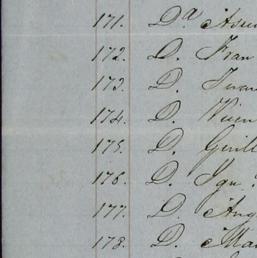 171. D.ª
172. D. Fran
173. D. Juan
174. D. Vicen
175. D. Guill
176. D. Ign.
177. D. Ang
178. D. Man